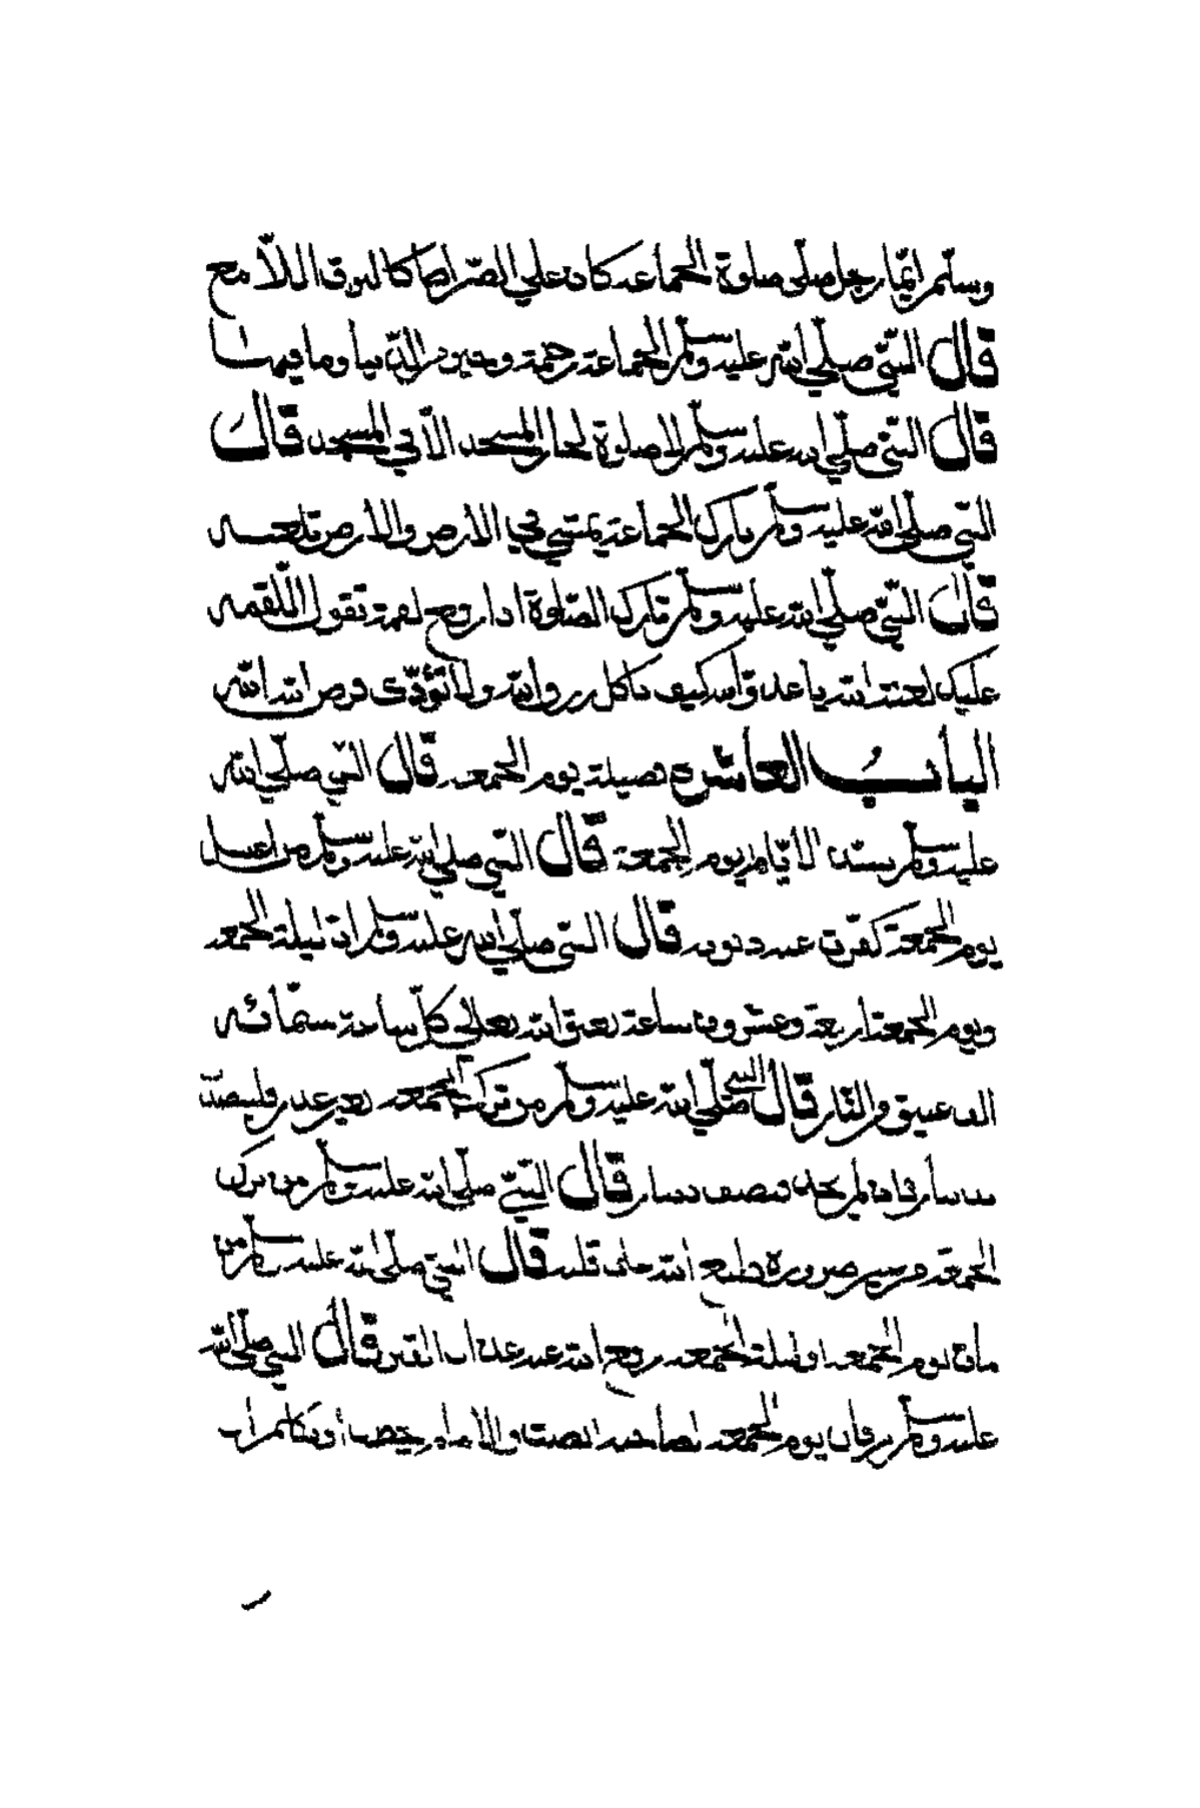 وسلّم ايّما رجل صلّى صلوة الجماعه كان علي الصّراط كالبرق اللّامع
قال النبّي صلّي الله عليه وسلّم الجماعة رحمة وخير من الدّنيا وما فيها
قال النبّي صلّي الله عليه وسلّم لا صلوة لجار المسجد الّا في المسجد قال
النبّي صلّي الله عليه وسلّم تارك الجماعة يمشي في الارض والارض تلعنه
قال النبّي صلّي الله عليه وسلّم تارك الصّلوة اذا رفع لقمة تقول اللّقمه
عليك لعنة الله يا عدوّ الله كيف تاكل رزق الله ولا تؤدّى فرض الله
الباب العاشر في فضيلة يوم الجمعه قال النبي صلّي الله
عليه وسلّم سيّد الايّام يوم الجمعة قال النبّي صلي الله عليه وسلّم من اغتسل
يوم الجمعة كفّرت عنه ذنوبه قال النبّي صلّي الله عليه وسلّم انّ ليلة الجمعه
ويوم الجمعة اربعة وعشرون ساعة يعتق الله تعالي كلّ ساعة ستّمائه
الف عتيق من النّار قال النبي صلّي الله عليه وسلّم من ترك الجمعه بغير عذر فليتصدّق
بدينار فان لم يجد فنصف دينار قال النبّي صلّي الله عليه وسلّم من ترك
الجمعة من غير ضرورة طبع الله على قلبه قال النبّي صلّي الله عليه وسلّم من
مات يوم الجمعه او ليلة الجمعه رفع الله عنه عذاب القبر قال النبي صلّي الله
عليه وسلّم من قال يوم الجمعه لصاحبه انصت والامام يخطب